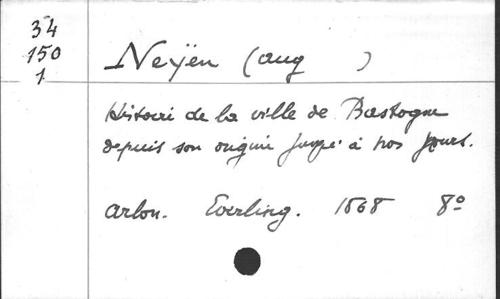 34
150
1
Neÿen (Aug )
Histoire de la ville de Bastogne
depuis son origine jusqu'à nos jours.
Arlon. Everling. 1868 8°